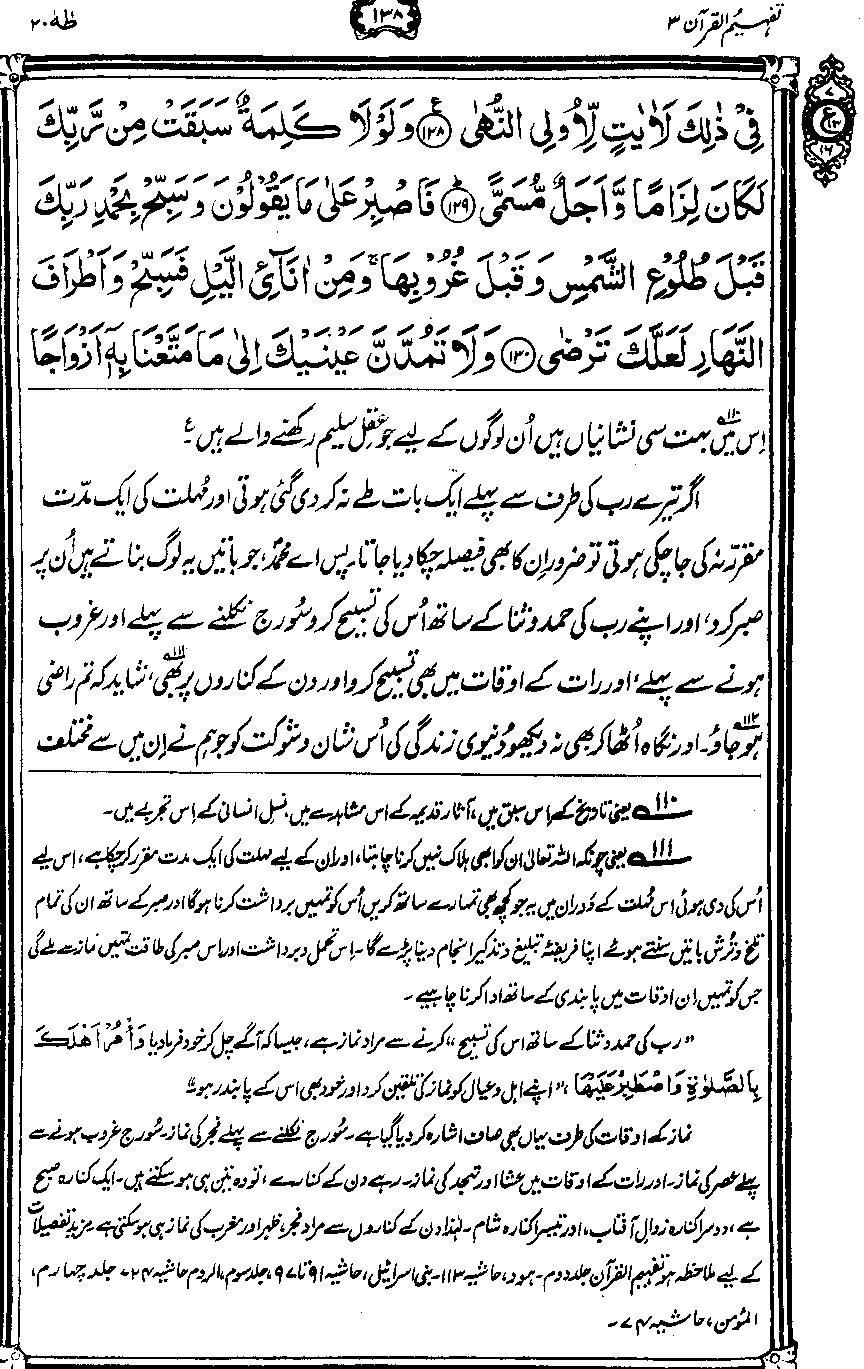 تفہیم القرآن ۳
۱۳۸
طٰہٰ ۲۰
فِیْ ذٰلِكَ لَاٰیٰتٍ لِّاُولِی النُّهٰی ﴿۱۲۸﴾ وَلَوْلَا كَلِمَةٌ سَبَقَتْ مِنْ رَّبِّكَ
لَكَانَ لِزَامًا وَّاَجَلٌ مُّسَمًّی ﴿۱۲۹﴾ فَاصْبِرْ عَلٰی مَا یَقُوْلُوْنَ وَسَبِّحْ بِحَمْدِ رَبِّكَ
قَبْلَ طُلُوْعِ الشَّمْسِ وَقَبْلَ غُرُوْبِهَا ۚ وَمِنْ اٰنَآئِ الَّیْلِ فَسَبِّحْ وَاَطْرَافَ
النَّهَارِ لَعَلَّكَ تَرْضٰی ﴿۱۳۰﴾ وَلَا تَمُدَّنَّ عَیْنَیْكَ اِلٰی مَا مَتَّعْنَا بِهٖۤ اَزْوَاجًا
ع
۱۶
اِس میں۱۱۰ بہت سی نشانیاں ہیں اُن لوگوں کے لیے جو عقلِ سلیم رکھنے والے ہیں۔ ع
اگر تیرے رب کی طرف سے پہلے ایک بات طے نہ کر دی گئی ہوتی اور مُہلت کی ایک مدّت
مقرر نہ کی جا چکی ہوتی تو ضرور اِن کا بھی فیصلہ چکا دیا جاتا۔ پس اے محمدؐ، جو باتیں یہ لوگ بناتے ہیں اُن پر
صبر کرو، اور اپنے رب کی حمد و ثنا کے ساتھ اُس کی تسبیح کرو سُورج نکلنے سے پہلے اور غروب
ہونے سے پہلے، اور رات کے اوقات میں بھی تسبیح کرو اور دن کے کناروں پر بھی،۱۱۱ شاید کہ تم راضی
ہو جاؤ۔۱۱۲ اور نگاہ اُٹھا کر بھی نہ دیکھو دُنیوی زندگی کی اُس شان و شوکت کو جو ہم نے اِن میں سے مختلف
۱۱۰ یعنی تاریخ کے اِس سبق میں، آثارِ قدیمہ کے اس مشاہدے میں، نسلِ انسانی کے اِس تجربے میں۔
۱۱۱ یعنی چونکہ اللہ تعالیٰ ان کو ابھی ہلاک نہیں کرنا چاہتا، اور ان کے لیے مہلت کی ایک مدت مقرر کر چکا ہے، اس لیے
اُس کی دی ہوئی اس مُہلت کے دَوران میں یہ جو کچھ بھی تمہارے ساتھ کریں اُس کو تمہیں برداشت کرنا ہوگا اور صبر کے ساتھ ان کی تمام
تلخ و تُرش باتیں سنتے ہوئے اپنا فریضۂ تبلیغ و تذکیر انجام دینا پڑے گا۔ اِس تحمل و برداشت اور اس صبر کی طاقت تمہیں نماز سے ملے گی
جس کو تمہیں ان اوقات میں پابندی کے ساتھ ادا کرنا چاہیے۔
”رب کی حمد و ثنا کے ساتھ اس کی تسبیح“ کرنے سے مراد نماز ہے، جیسا کہ آگے چل کر خود فرما دیا وَاْمُرْ اَهْلَكَ
بِالصَّلٰوةِ وَاصْطَبِرْ عَلَیْهَا، ”اپنے اہل و عیال کو نماز کی تلقین کرو اور خود بھی اس کے پابند رہو“۔
نماز کے اوقات کی طرف یہاں بھی صاف اشارہ کر دیا گیا ہے۔ سُورج نکلنے سے پہلے فجر کی نماز۔ سُورج غروب ہونے سے
پہلے عصر کی نماز۔ اور رات کے اوقات میں عشا اور تہجد کی نماز۔ رہے دن کے کنارے، تو وہ تین ہی ہو سکتے ہیں۔ ایک کنارہ صبح
ہے، دوسرا کنارہ زوالِ آفتاب، اور تیسرا کنارہ شام۔ لہٰذا دن کے کناروں سے مراد فجر، ظہر اور مغرب کی نماز ہی ہو سکتی ہے۔ مزید تفصیلات
کے لیے ملاحظہ ہو تفہیم القرآن جلد دوم۔ ہود، حاشیہ ۱۱۳۔ بنی اسرائیل، حاشیہ ۹۱ تا ۹۷، جلد سوم، الروم حاشیہ ۲۴۔ جلد چہارم،
المؤمن، حاشیہ ۷۴۔